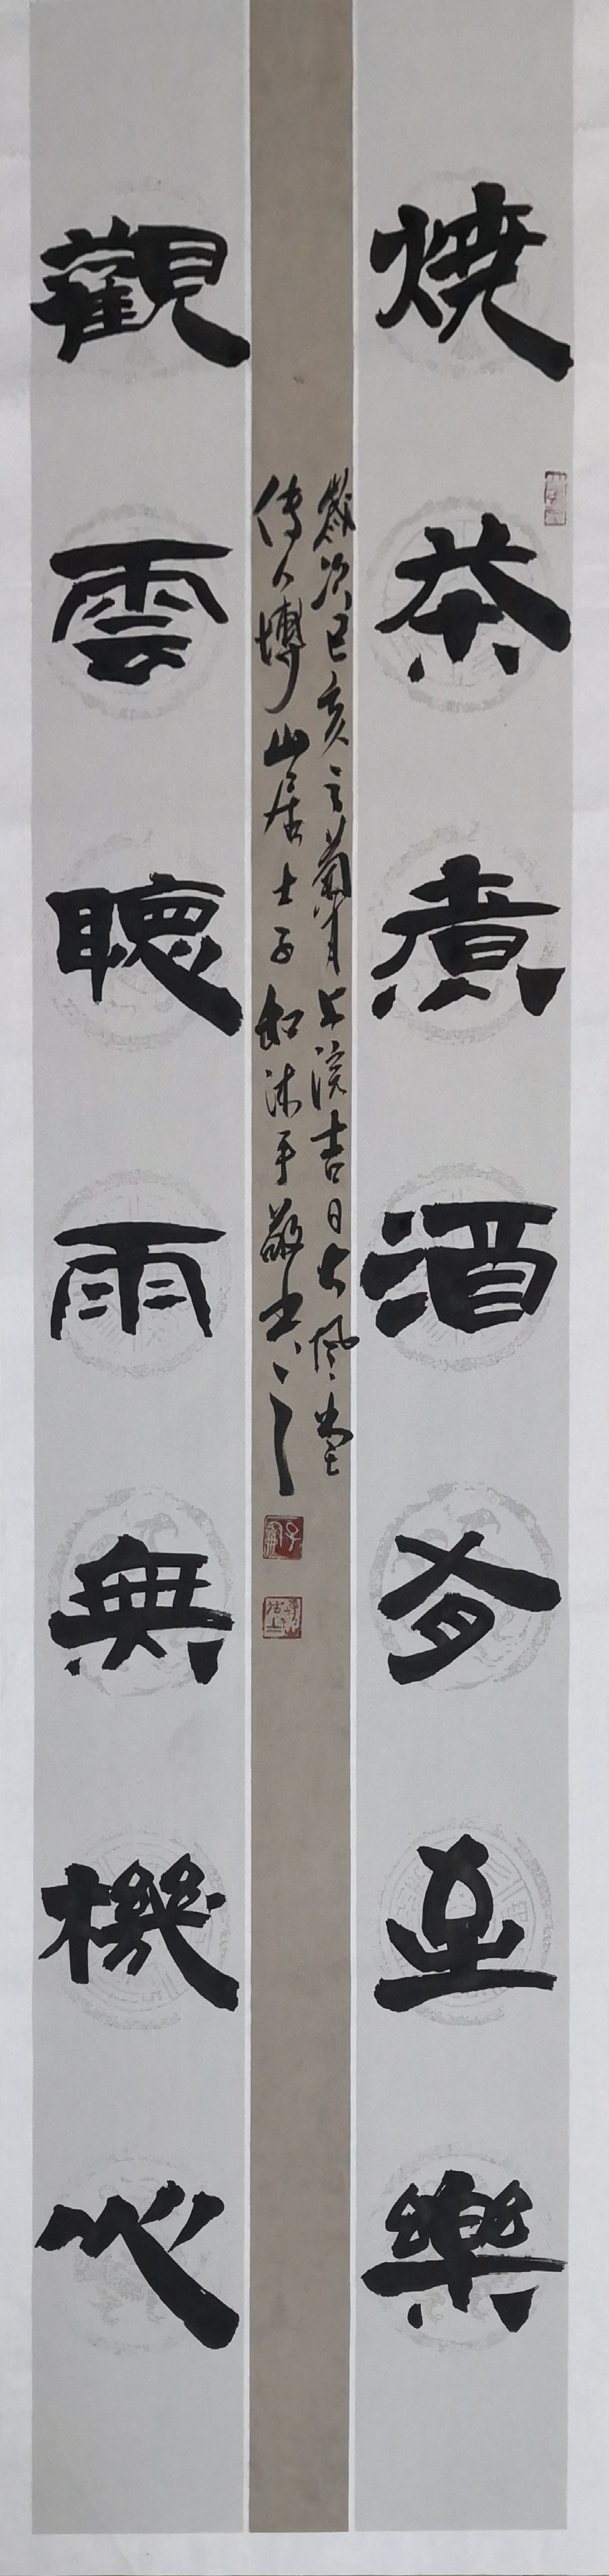 燒茶煮酒有至樂
歲次己亥之月上浣吉日大風堂
傳人博山居士子和沐手敬書
觀雲聽雨無機心